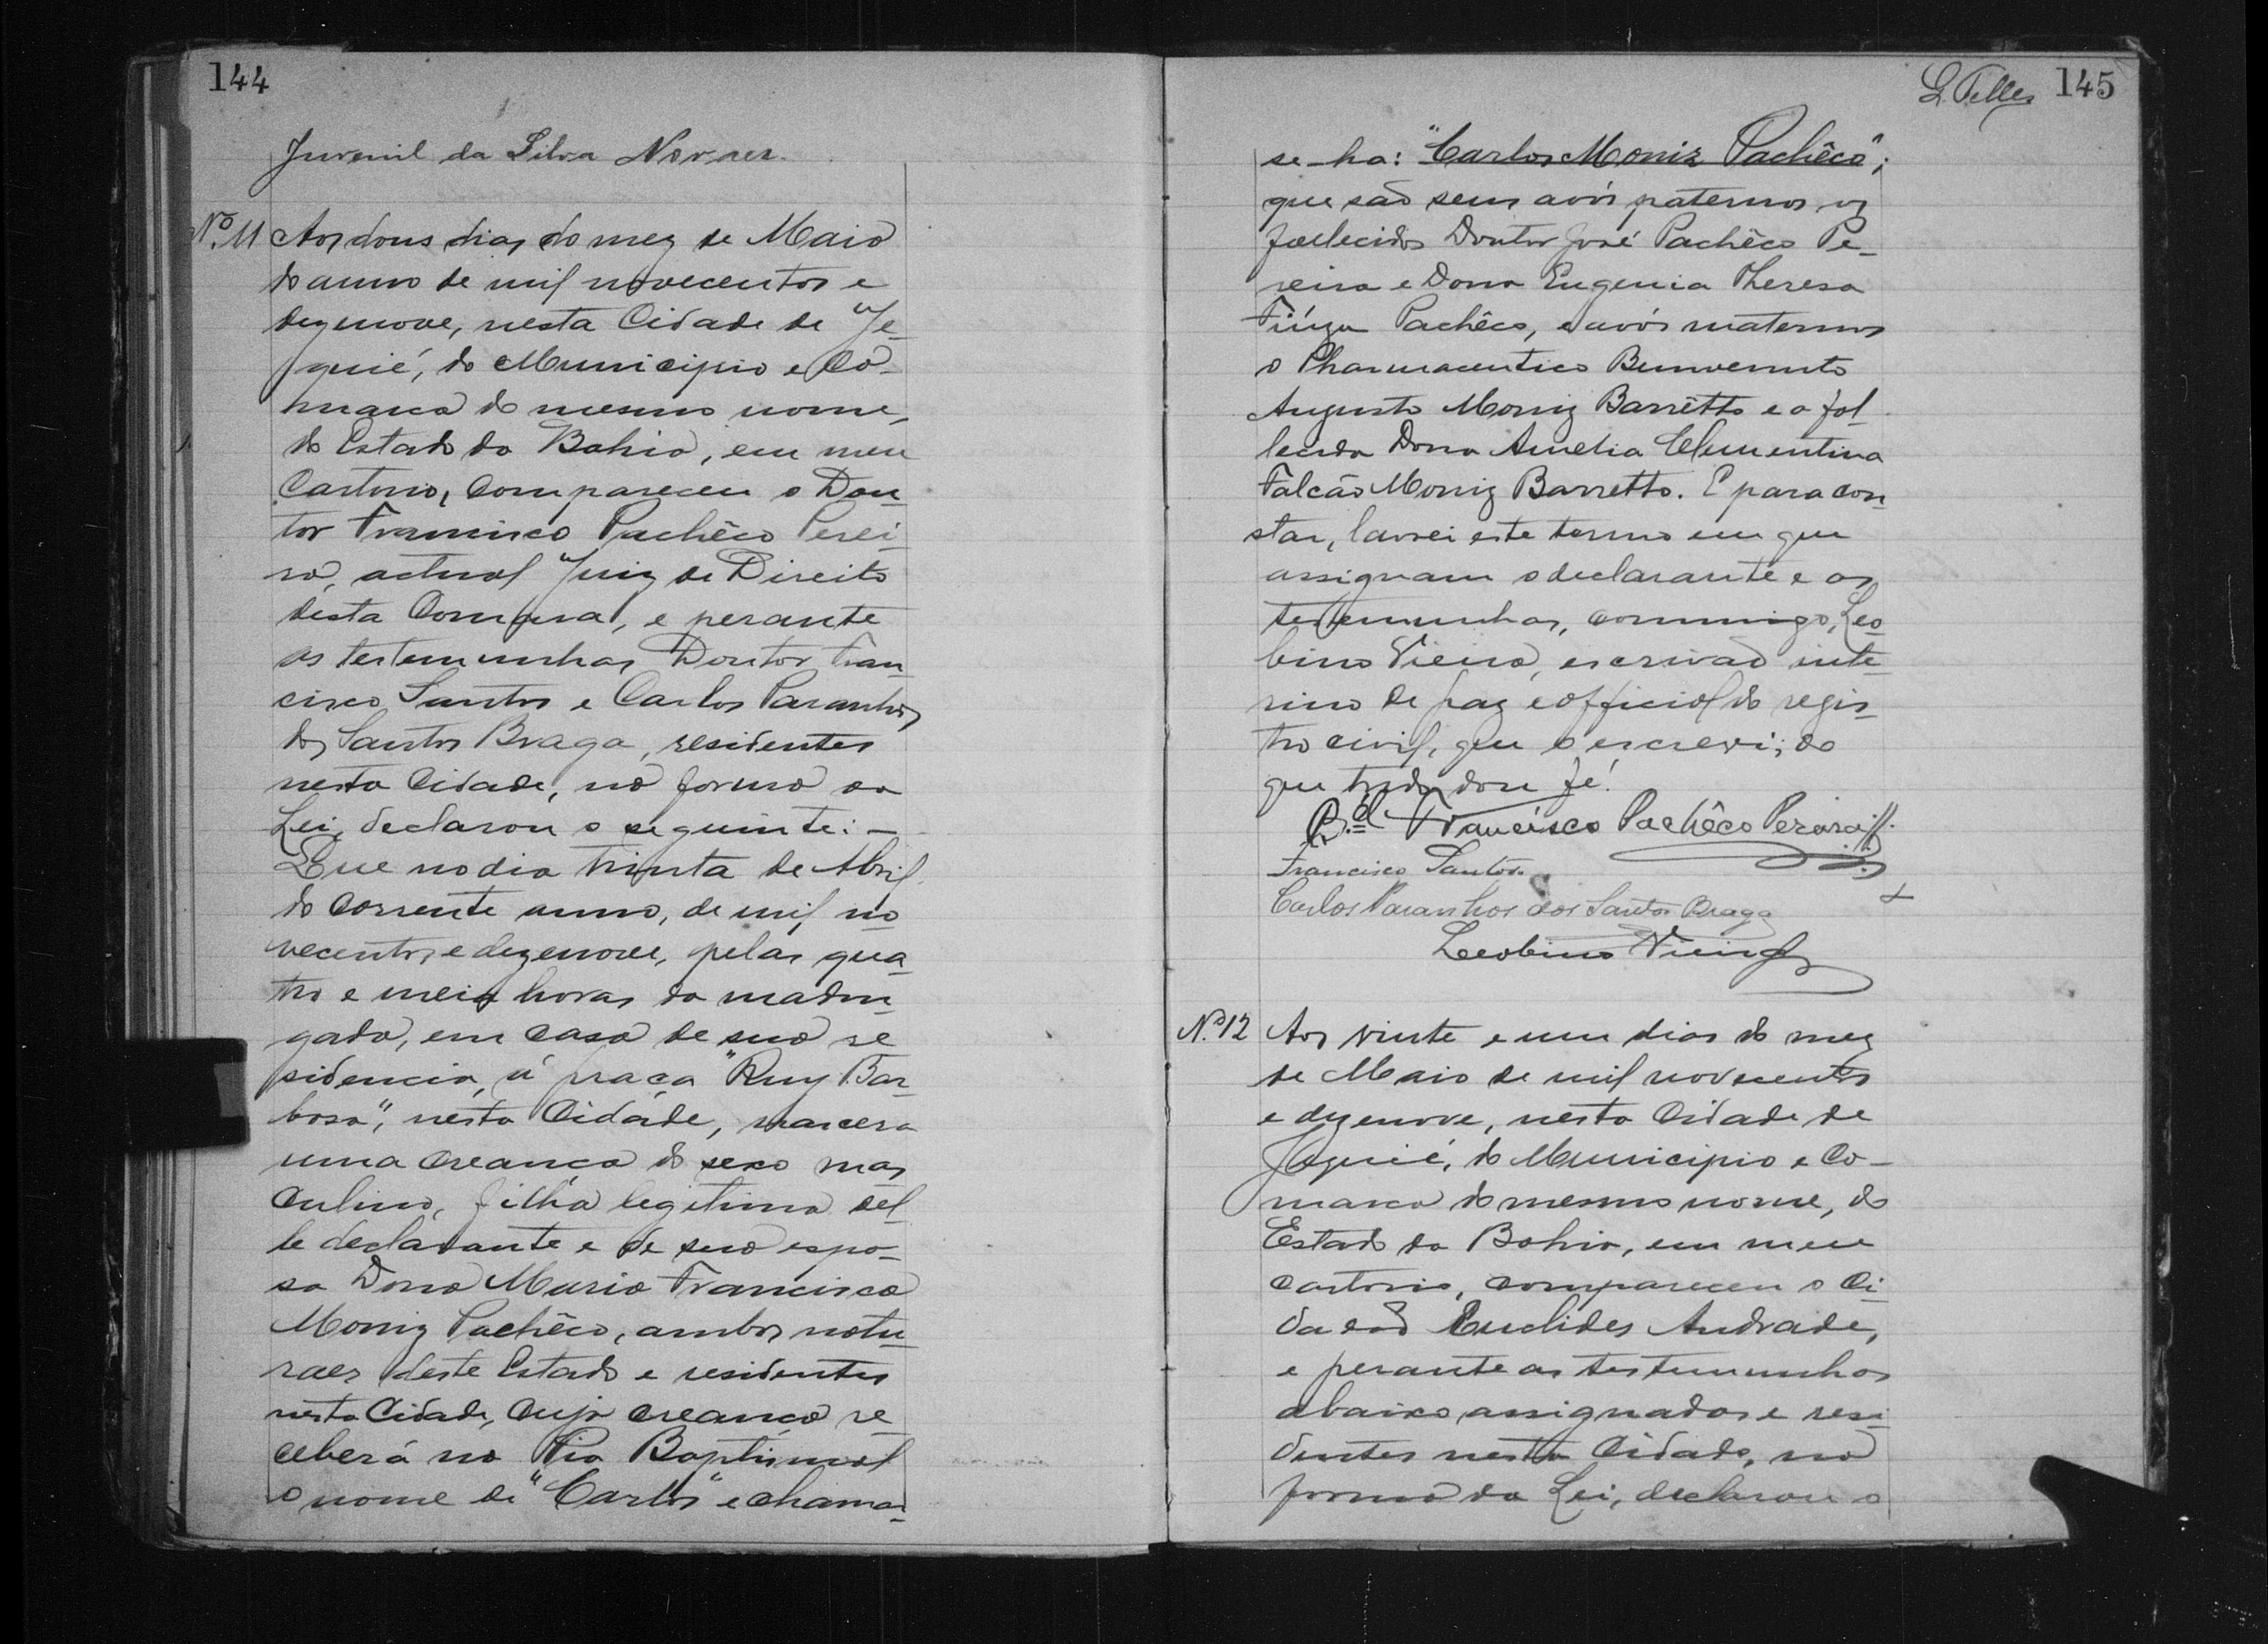 144
Juvenil da Silva Novaes.
Nº 11 Aos dous dias do mez de Maio
do anno de mil novecentos e
dezenove, nesta Cidade de Je-
quié, do Municipio e Co-
marca do mesmo nome,
do Estado da Bahia, em meu
Cartorio, compareceu o Dou-
tor Francisco Pachêco Perei-
ra, actual Juiz de Direito
desta Comarca, e perante
as testemunhas Doutor Fran-
cisco Santos e Carlos Paranhos
dos Santos Braga, residentes
nesta Cidade, na forma da
Lei, declarou o seguinte: -
Que no dia trinta de Abril
do corrente anno, de mil no
vecentos e dezenove, pelas qua-
tro e meia horas da madru-
gada, em casa de sua re
sidencia, á praça "Ruy Bar-
bosa", nesta Cidade, nascera
uma creança do sexo mas
culino, filha legitima del-
le declarante e de sua espo-
sa Dona Maria Francisca
Moniz Pachêco, ambos natu-
raes deste Estado e residentes
nesta Cidade, cuja creança re-
ceberá na Pia Baptismal
o nome de "Carlos" e chamar-
L. Telles 145
se-ha: "Carlos Moniz Pachêco";
que são seus avós paternos os
fallecidos Doutor José Pachêco Pe-
reira e Dona Eugenia Thereza
Fiúza Pachêco, e avós maternos
o Pharmaceutico Bemvenuto
Augusto Moniz Barrêtto e a fal-
lecida Dona Amelia Clementina
Falcão Moniz Barretto. E para con-
star, lavrei este termo em que
assignam o declarante e as
testemunhas, commigo, Leo-
bino Vieira, escrivão inte-
rino de paz e official do regis-
tro civil, que o escrevi; do
que tudo dou fé.
B.el Francisco Pachêco Pereira
Francisco Santos
Carlos Paranhos dos Santos Braga
Leobino Vieira
Nº 12 Aos vinte e um dias do mez
de Maio de mil novecentos
e dezenove, nesta Cidade de
Jequié, do Municipio e Co-
marca do mesmo nome, do
Estado da Bahia, em meu
cartorio, compareceu o Ci-
dadão Euclides Andrade,
e perante as testemunhas
abaixo assignadas e resi-
dentes nesta Cidade, na
forma da Lei, declarou o